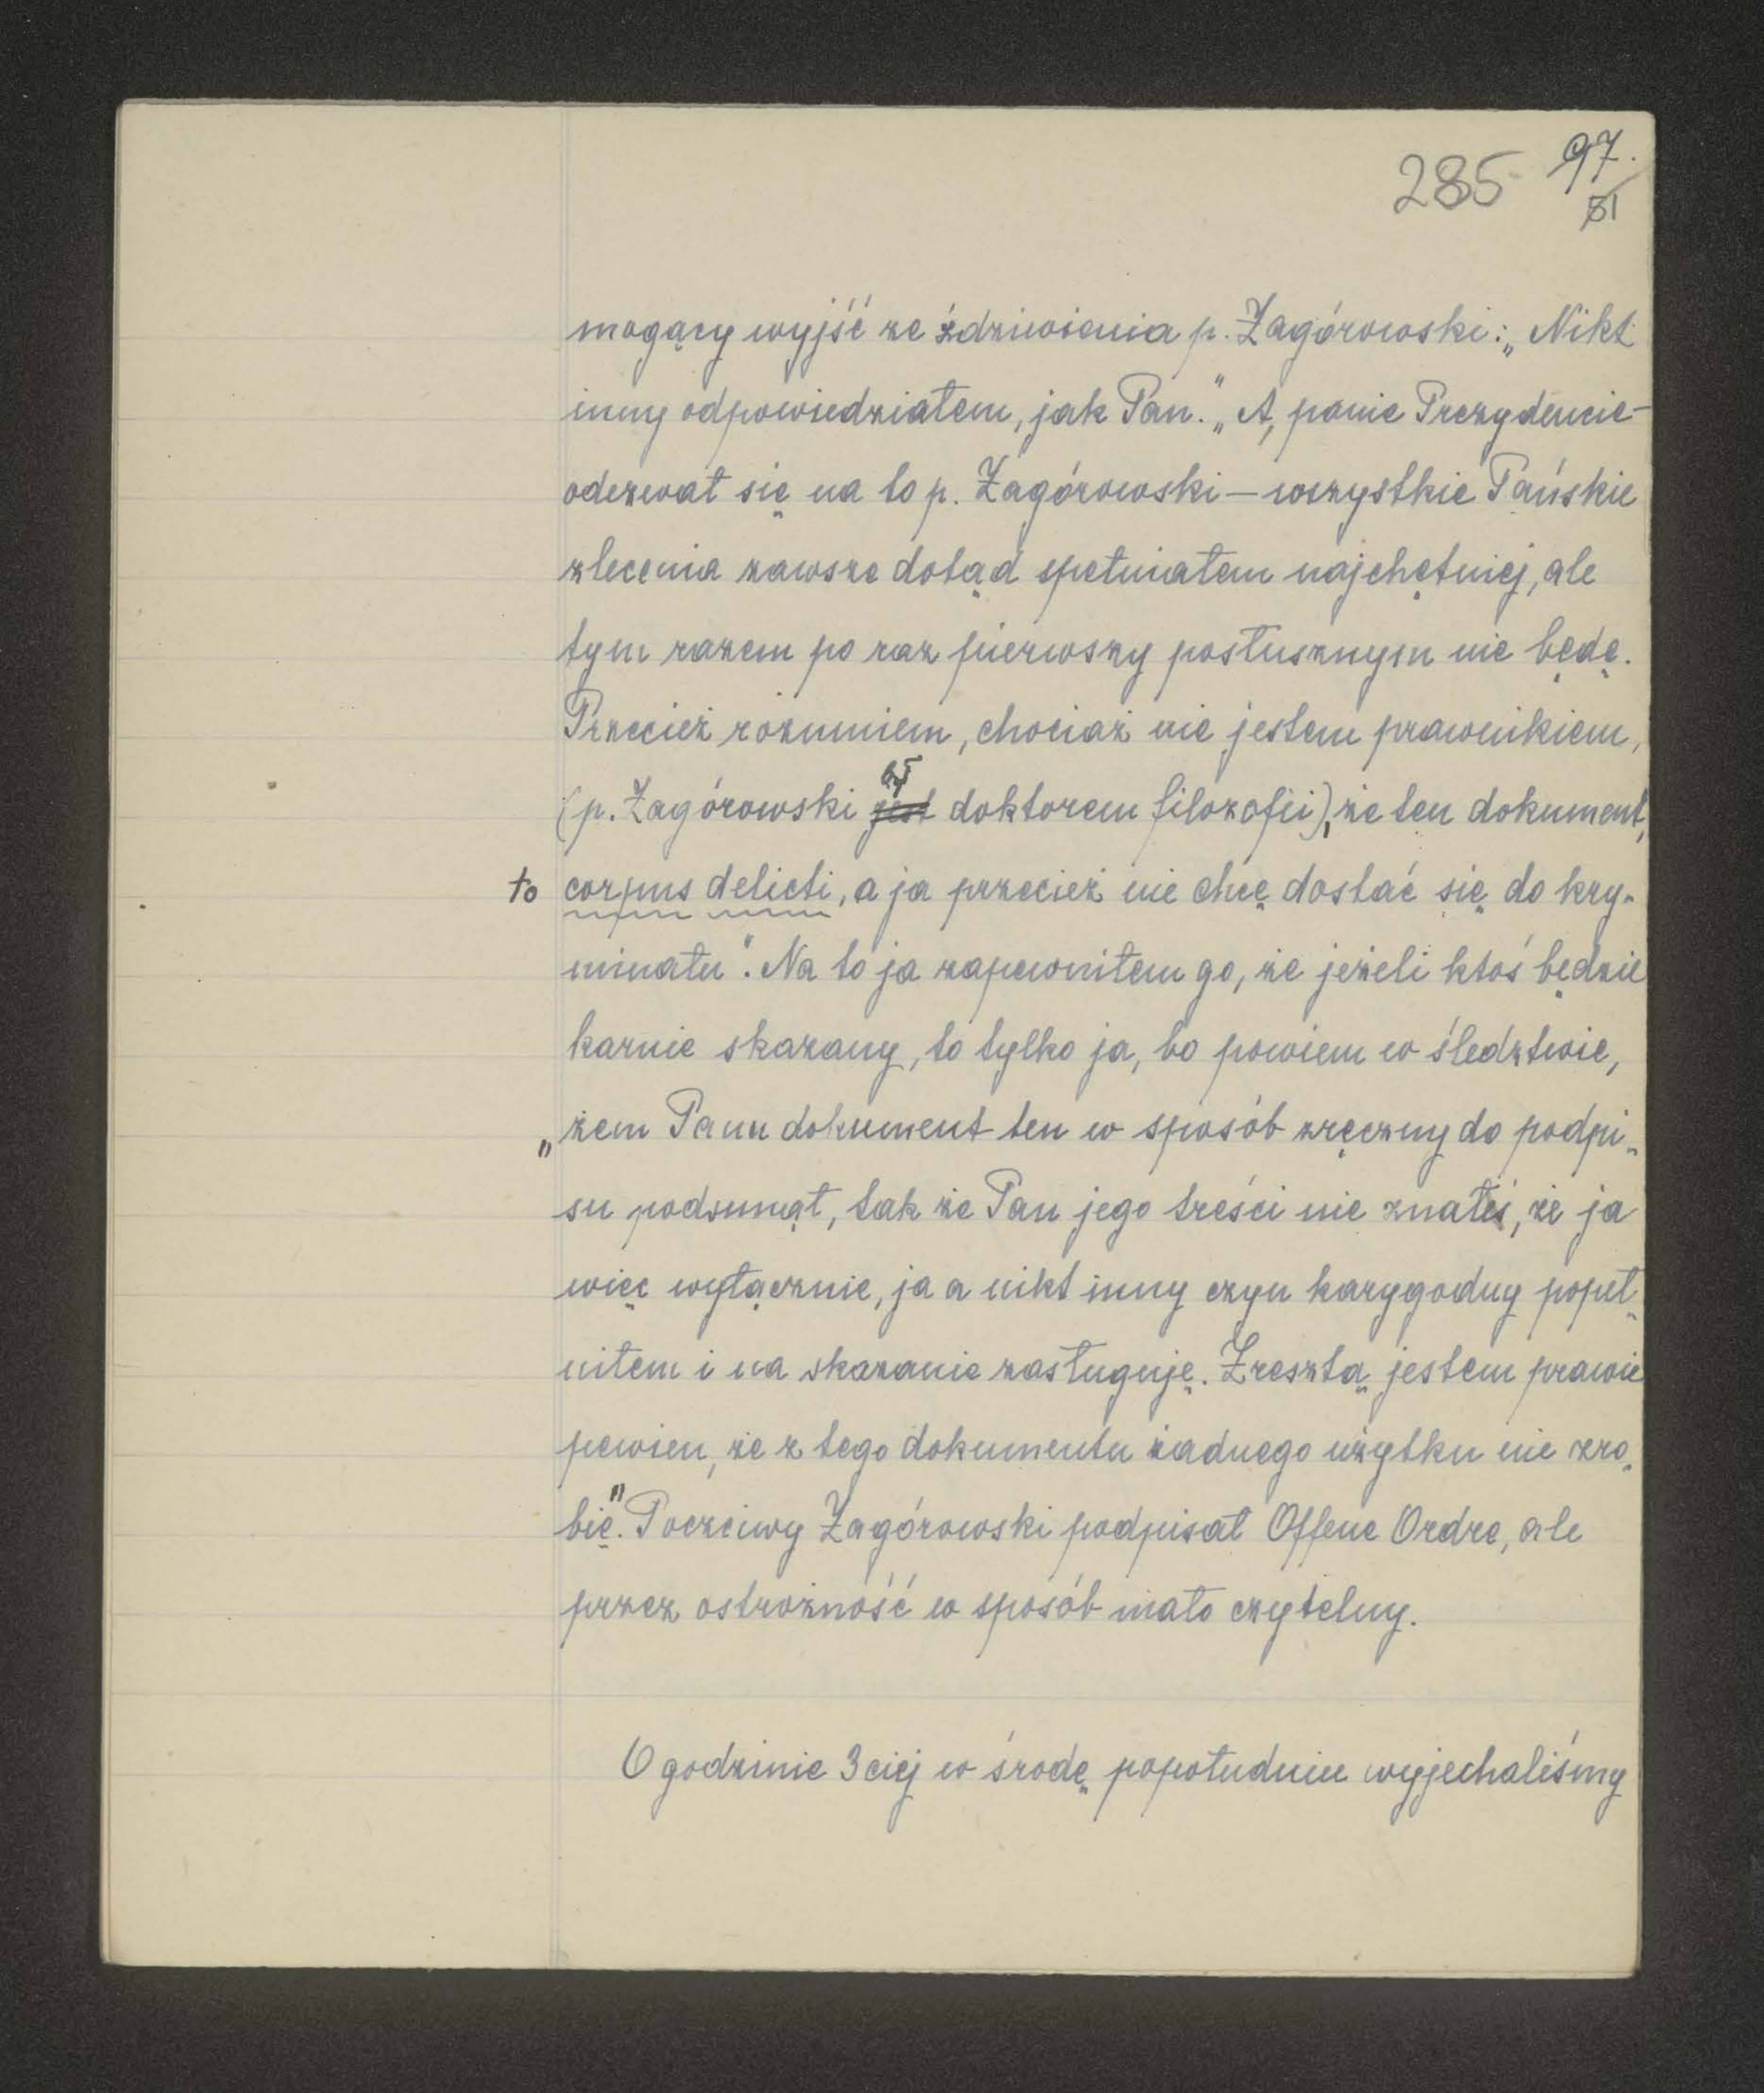 285 97.
51
mogący wyjść ze zdziwienia p. Zagórowski: „Nikt
inny odpowiedziałem, jak Pan." „A, panie Prezydencie –
odezwał się na to p. Zagórowski – wszystkie Pańskie
zlecenia zawsze dotąd spełniałem najchętniej, ale
tym razem po raz pierwszy posłusznym nie będę.
Przecież rozumiem, chociaż nie jestem prawnikiem,
(p. Zagórowski jest był doktorem filozofii), że ten dokument,
to corpus delicti, a ja przecież nie chcę dostać się do kry-
minału". Na to ja zapewniłem go, że jeżeli ktoś będzie
karnie skazany, to tylko ja, bo powiem w śledztwie,
„żem Panu dokument ten w sposób zręczny do podpi-
su podsunął, tak że Pan jego treści nie znałeś, że ja
więc wyłącznie, ja a nikt inny czyn karygodny popeł-
niłem i na skazanie zasługuję. Zresztą jestem prawie
pewien, że z tego dokumentu żadnego użytku nie zro-
bię". Poczciwy Zagórowski podpisał Offene Ordre, ale
przez ostrożność w sposób mało czytelny.
O godzinie 3ciej w środę popołudniu wyjechaliśmy